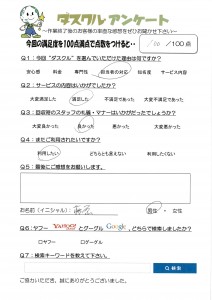 ダスクルアンケート
～作業終了後のお客様の率直な感想をぜひお聞かせ下さい～
今回の満足度を100点満点で点数をつけると・・ 100 /100点
Q1：今回“ダスクル”を選んでいただけた理由は何ですか？
安心感 料金 専門性 担当者の対応 知名度 サービス内容
Q2：サービスの内容はいかがでしたか？
大変満足した 満足した 不満足であった 大変不満であった
Q3：回収時のスタッフの礼儀・マナーはいかがだったでしょうか？
大変良かった 良かった 悪かった 大変悪かった
Q4：またご利用されたいですか？
利用したい どちらとも言えない 利用したくない
Q5：最後にご感想をお願いします。
お名前（イニシャル）： 男性 ・ 女性
Q6：ヤフー YAHOO! とグーグル Google、どちらで検索しましたか？
□ヤフー □グーグル
Q7：検索キーワードを教えて下さい。
検索
ご協力いただき、誠にありがとうございました。